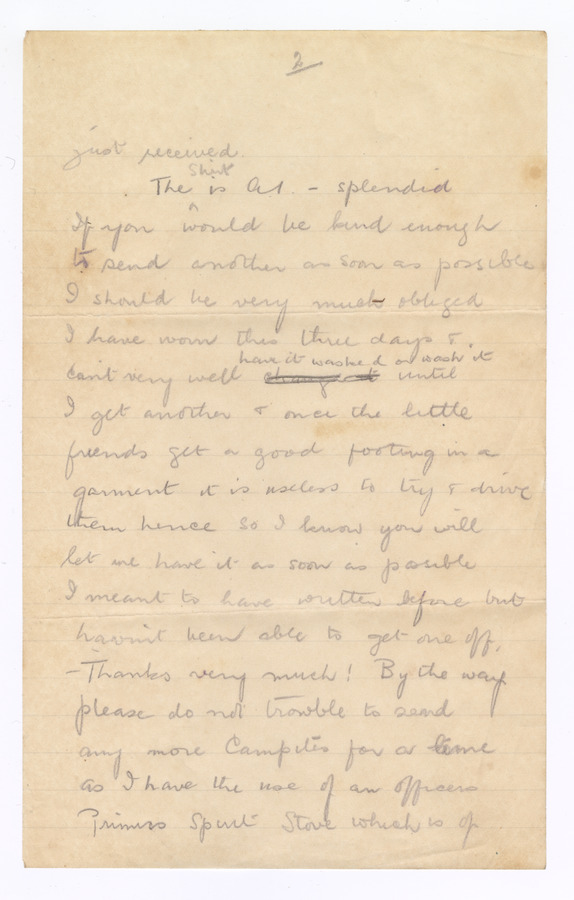 2
just received.
Shirt
The is A.1. – splendid
If you would be kind enough
to send another as soon as possible
I should be very much obliged
I have worn this three days &
have it washed or wash it
cant very well until
I get another & once the little
friends get a good footing in a
garment it is useless to try & drive
them hence so I know you will
let me have it as soon as possible
I meant to have written before but
havin't been able to get one off.
– Thanks very much! By the way
please do not trouble to send
any more Campites for a time
as I have the use of an officers
Primus Spirit Stove which is of